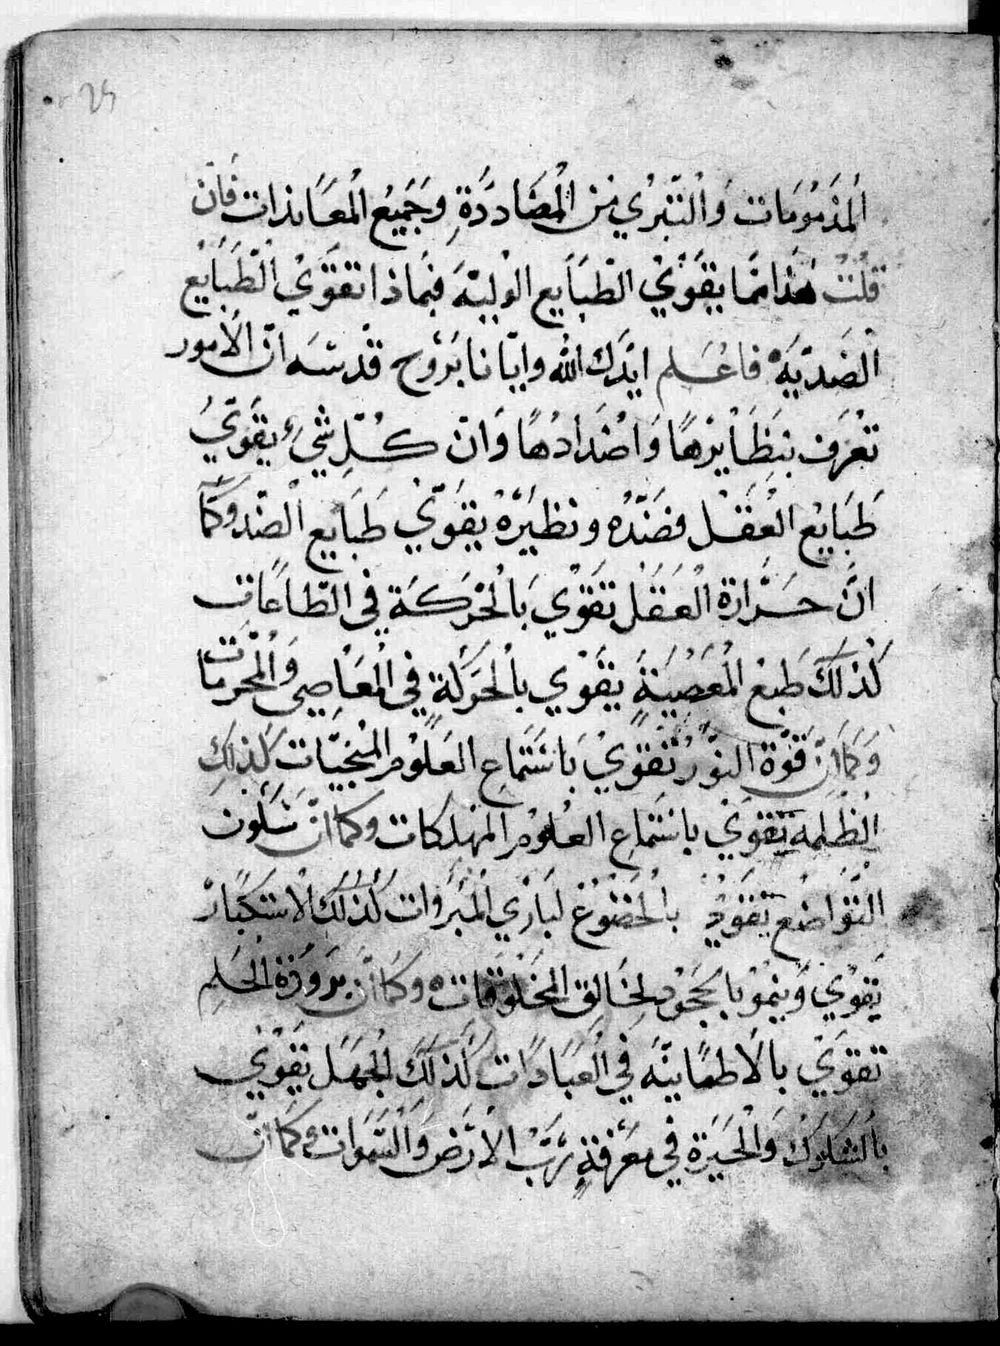 المذمومات والتبري من المضاددة وجميع المعاندات فان
قلت هذا مما يقوي الطبايع الوليه فبماذا تقوي الطبايع
الضديه فاعلم ايدك الله وايانا بروح قدسه ان الامور
تعرف بنظايرها واضدادها وان كل شيء يقوي
طبايع العقل فضده ونظيره يقوي طبايع الضد وكما
ان حرارة العقل تقوي بالحركة في الطاعات
كذلك طبع المعصية يقوي بالحركة في المعاصي والمحرمات
وكما ان قوة النور تقوي باستماع العلوم المنجيات كذلك
الظلمة تقوي باستماع العلوم المهلكات وكما ان سكون
التواضع تقوي بالخضوع لباري المبروات كذلك الاستكبار
يقوي وينمو بالجحود لخالق المخلوقات وكما ان برودة الحلم
تقوي بالاطمانيه في العبادات كذلك الجهل يقوي
بالشكوك والحيرة في معرفة رب الارض والسموات وكما ان